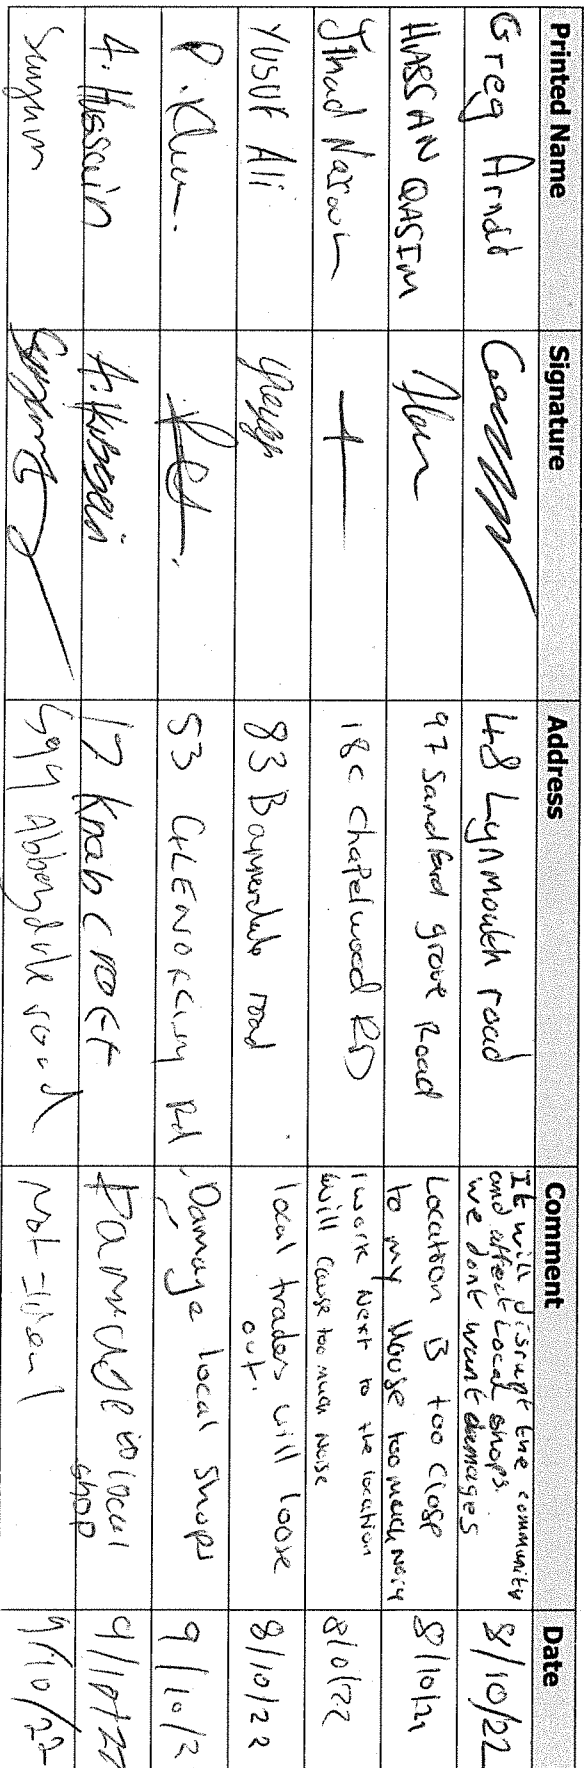 Printed Name Signature Address Comment Date
Greg Arndt 48 Lynmouth road It will disrupt the community
and affect Local shops.
we dont want damages 8/10/22
HASSAN QASIM 97 Sandford grove Road Location is too close
to my house too much 8/10/22
Jihad 18c Chapelwood RD I work next to the location
will cause too much noise 8/10/22
YUSUF Ali 83 road local traders will loose
out. 8/10/22
P. 53 Rd Damage local shops 9/10/2
A. Hussain A. Hussain 17 Knab croft Damage to local
shop 9/10/22
Abbeydale road Not ideal 9/10/22